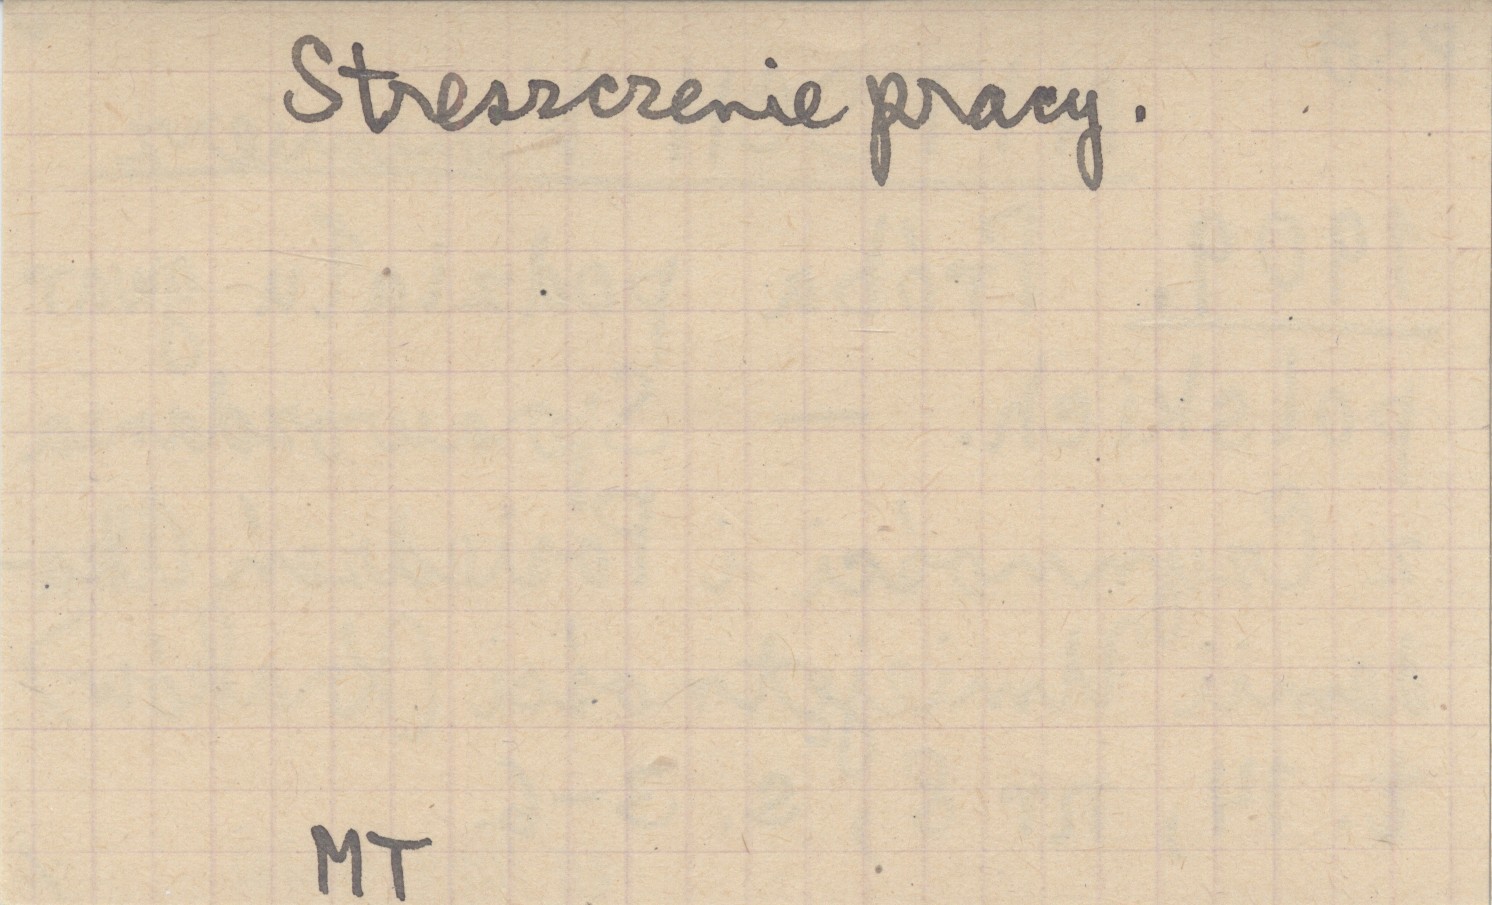 Streszczenie pracy.
MT